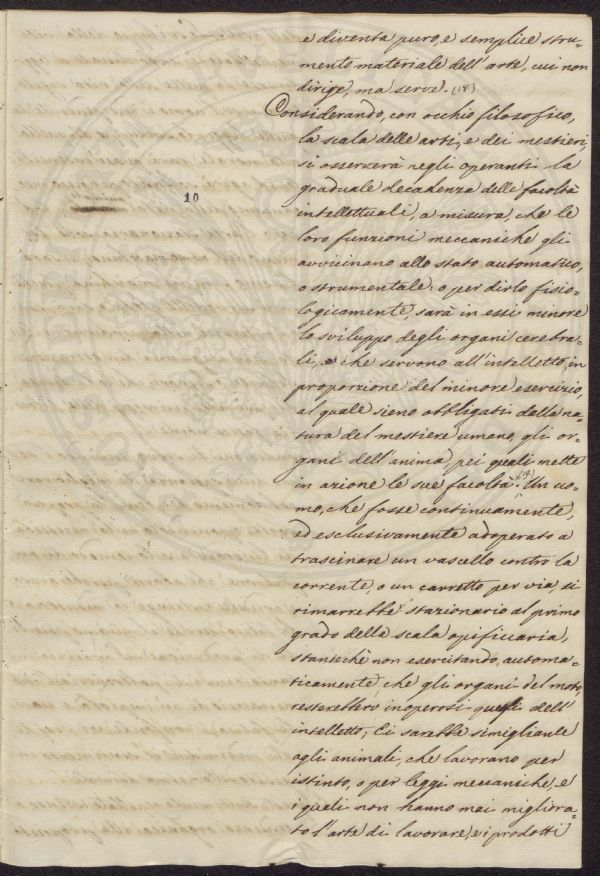 e diventa puro, e semplice stru-
mento materiale dell'arte, cui non
dirige, ma serve. (18.)
Considerando, con occhio filosofico,
la scala delle arti, e dei mestieri,
si osserverà negli operanti la
graduale decadenza delle facoltà
intellettuali, a misura, che le
loro funzioni meccaniche gli
avvicinano allo stato automatico,
o strumentale: o per dirlo fisio-
logicamente, sarà in essi minore
lo sviluppo degli organi cerebra-
li, che servono all'intelletto, in
proporzione del minore esercizio,
al quale sieno obbligati dalla na-
tura del mestiere umano, gli or-
gani dell'anima, pei quali mette
in azione le sue facoltà. (19) Un uo-
mo, che fosse continuamente,
ed esclusivamente adoperato a
trascinare un vascello contro la
corrente, o un carretto per via, si
rimarrebbe stazionario al primo
grado della scala opificiaria,
stanteché non esercitando, automa-
ticamente, che gli organi del moto,
resterebbero inoperosi quegli dell'
intelletto; Ei sarebbe simigliante
agli animali, che lavorano per
istinto, o per leggi meccaniche, e
i quali non hanno mai migliora-
to l'arte di lavorare, e i prodotti
10